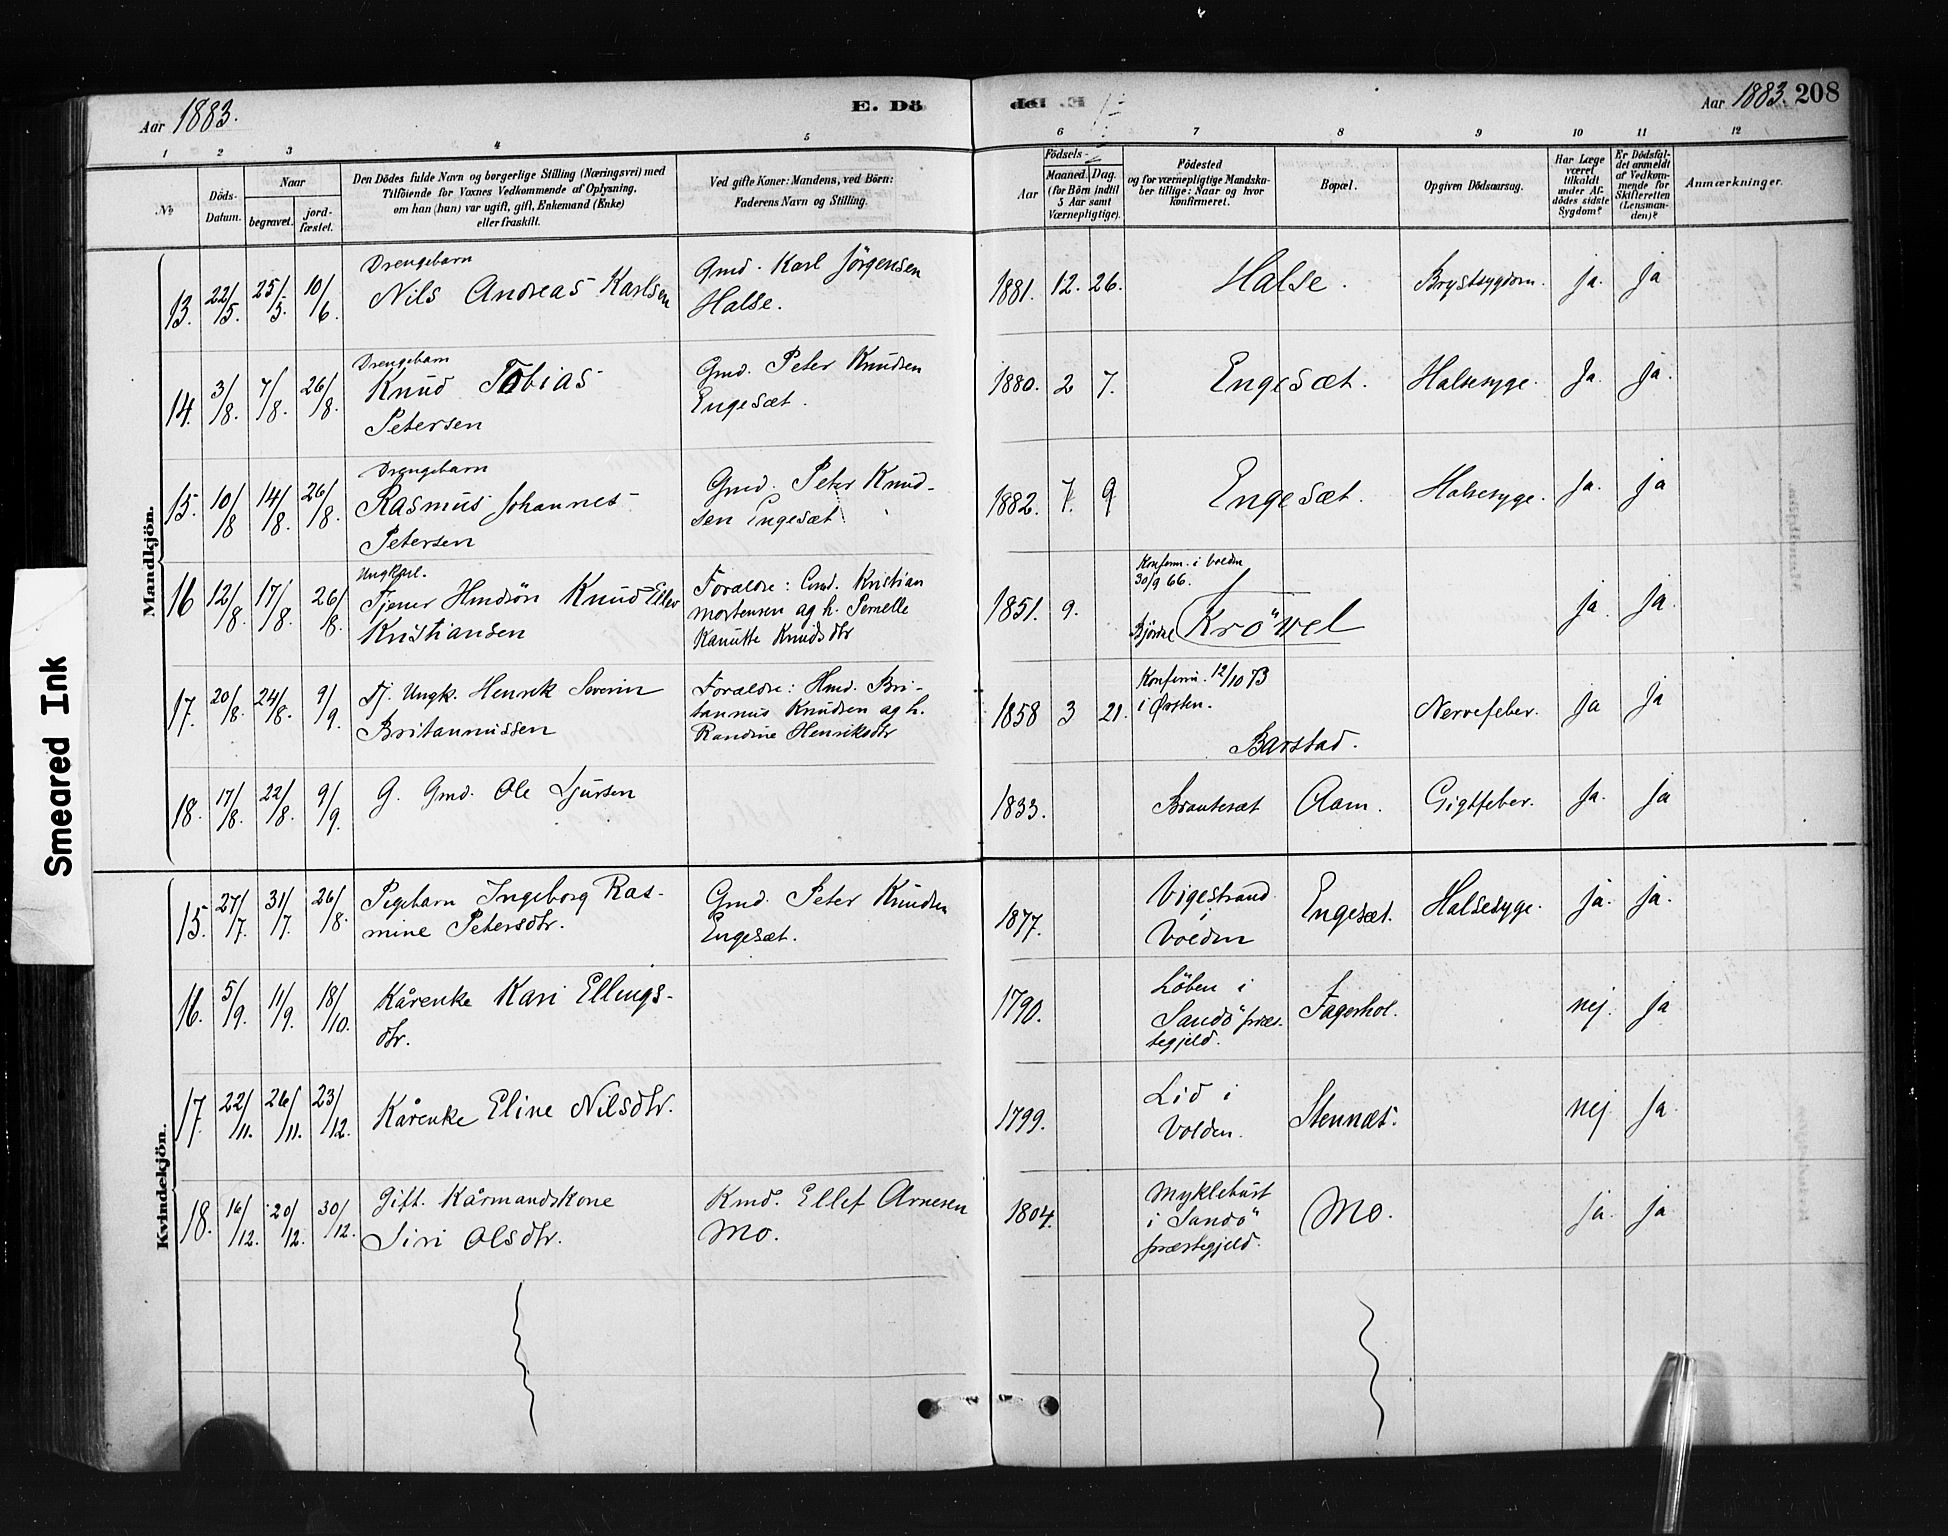 Aar 1883.
E. Dö
de. E.
Aar 1883. 208
1 2 3 4 5 6 7 8 9 10 11 12
No
Döds-
Datum.
Naar
begravet.
jord-
fæstet.
Den Dödes fulde Navn og borgerlige Stilling (Næringsvei) med
Tilföiende for Voxnes Vedkommende af Oplysning,
om han (hun) var ugift, gift, Enkemand (Enke)
eller fraskilt.
Ved gifte Koner: Mandens, ved Börn:
Faderens Navn og Stilling.
Födsels-
Aar
Maaned. Dag.
(for Börn indtil
5 Aar samt
Værnepligtige).
Födested
og for værnepligtige Mandska-
ber tillige: Naar og hvor
konfirmeret.
Bopæl.
Opgiven Dödsaarsag.
Har Læge
været
tilkaldt
under Af-
dödes sidste
Sygdom?
Er Dödsfal-
det anmeldt
af Vedkom-
mende for
Skifteretten
(Lensman-
den)?
Anmærkninger.
Mandkjön.
Drengebarn
13. 22/5. 25/5. 10/6. Nils Andreas Karlsen
Gmd. Karl Jörgensen
Halse.
1881. 12. 26. Halse. Brystsygdom. ja. ja
Drengebarn
14. 3/8. 7/8. 26/8. Knud Tobias
Petersen
Gmd. Peter Knudsen
Engesæt.
1880. 2 7. Engesæt. Halsesyge. Ja. ja.
Drengebarn
15. 10/8 14/8. 26/8. Rasmus Johannes
Petersen
Gmd. Peter Knud-
sen Engesæt
1882. 7. 9 Engesæt. Halsesyge. Ja. ja
Ungkarl.
16 12/8. 17/8. 26/8. Tjener Hmdsön Knud Elles
Kristiansen
Forældre: Gmd. Kristian
Mortensen og h. Pernelle
Kanutte Knudsdtr
1851. 9.
Konferm. i Volden
30/9 66.
Björke Kröwel ja. ja.
17. 20/8. 24/8. 9/9. Tj. Ungk. Henrik Severin
Britannussen
Forældre: Hmd. Bri-
tannus Knudsen og h.
Randine Henriksdtr
1858 3 21.
Konferm. 12/10 73
i Örsten.
Barstad. Nervefeber. ja Ja
18. 17/8. 22/8. 9/9. G. Gmd. Ole Sjursen
1833. Brautesæt Aam. Gigtfeber. Ja. Ja
Kvindekjön.
15. 27/7. 31/7. 26/8. Pigebarn Ingeborg Ras-
mine Petersdtr.
Gmd. Peter Knudsen
Engesæt.
1877. Vigestrand
i
Volden
Engesæt. Halsesyge. ja. ja.
16. 5/9. 11/9. 18/10. Kårenke Kari Ellings-
dtr.
1790. Löben i
Sandö præs-
tegjeld.
Fagerhol. nej. ja
17. 22/11. 26/11. 23/12. Kårenke Eline Nilsdtr.
1799. Lid i
Volden.
Stennæs. nej. Ja.
18. 16/12. 20/12. 30/12. Gift. Kårmandskone
Siri Olsdtr.
Kmd. Ellef Arnesen
Mo.
1804. Myklebust
i Sandö
præstegjeld.
Mo. ja. ja
Smeared Ink